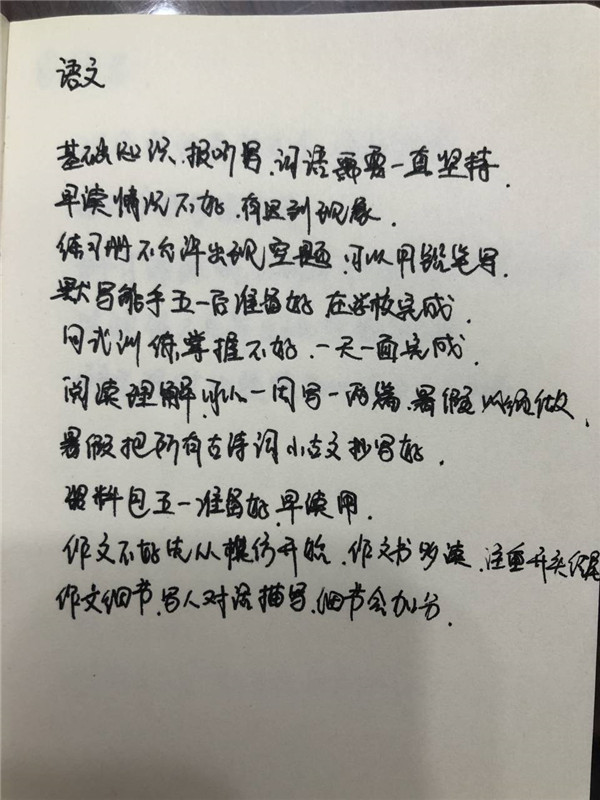 语文
基础知识、报听写、词语需要一直坚持.
早读情况不好,有迟到现象.
练习册不允许出现空题,可以用铅笔写.
默写能手五一后准备好 在学校完成.
句式训练掌握不好,一天一面完成.
阅读理解,可以一周写一两篇、暑假必须做、
暑假把所有古诗词小古文抄写好.
资料包五一准备好,早读用.
作文不好先从模仿开始、作文书多读、注重开头结尾
作文细节、写人对话描写、细节会加分.